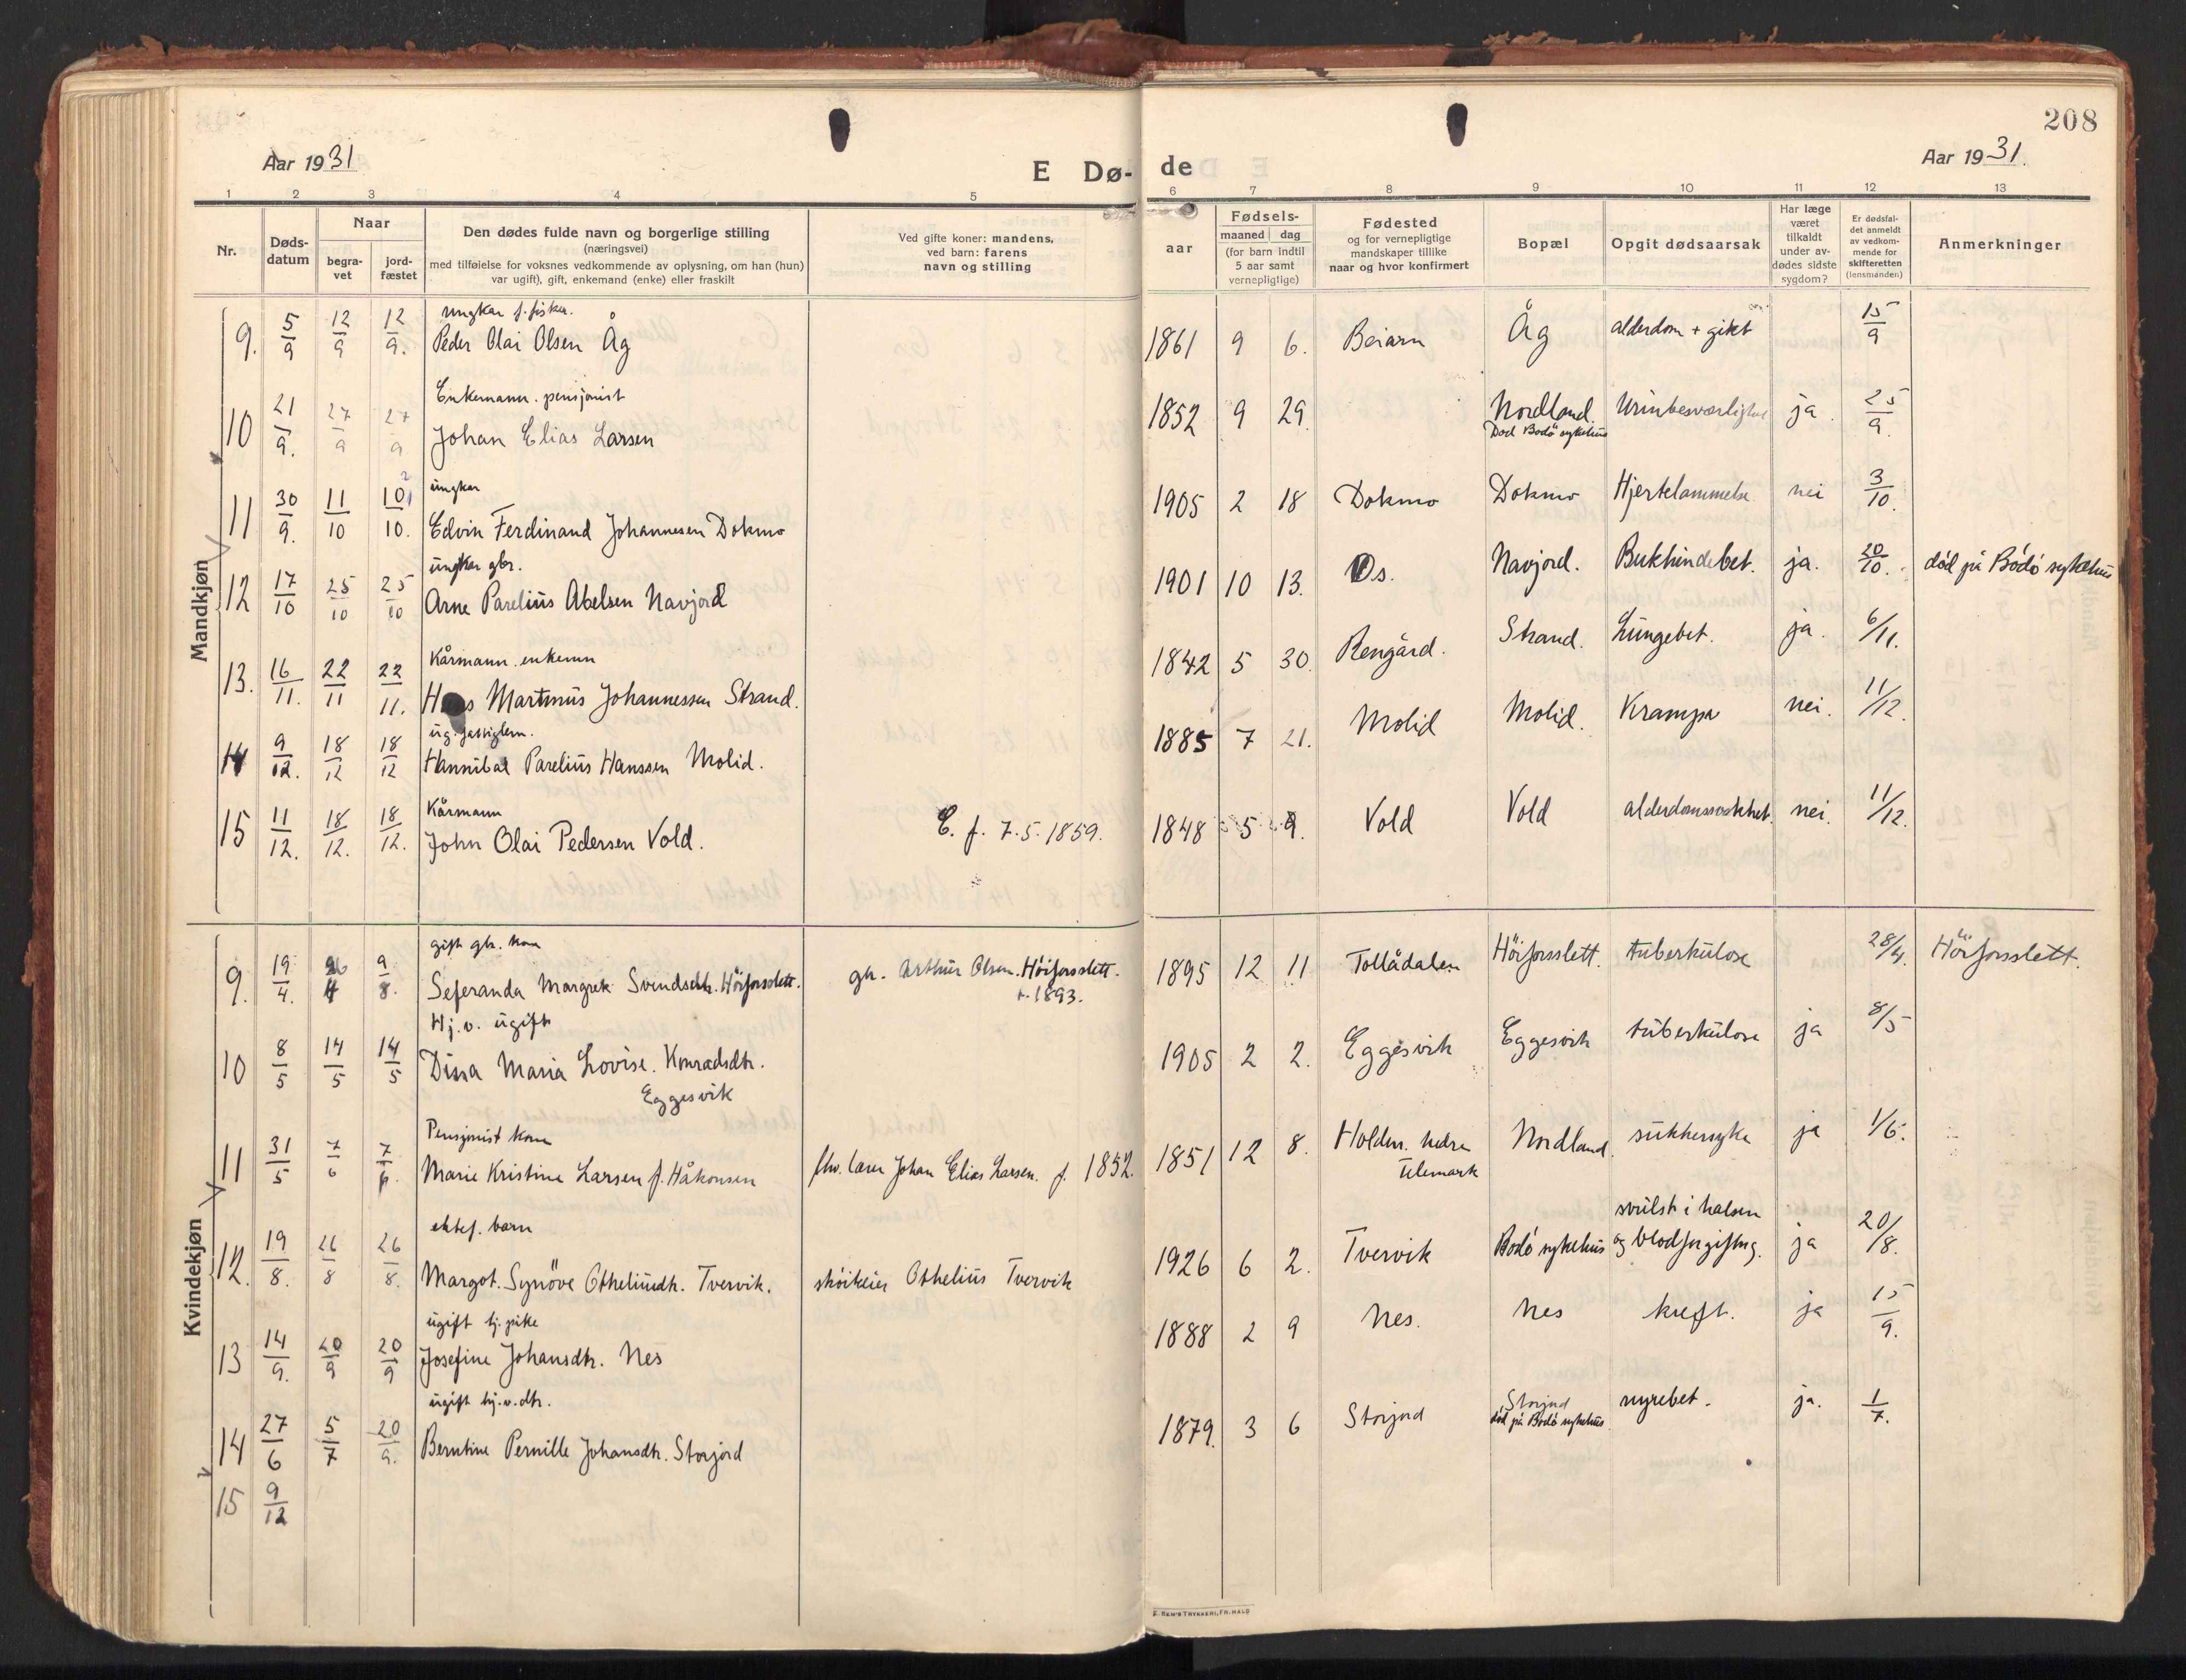 208
Aar 1931
E Dø-
de
Aar 1931.
1 2 3 4 5 6 7 8 9 10 11 12 13
Nr.
Døds-
datum
Naar
begra-
vet
jord-
fæstet
Den dødes fulde navn og borgerlige stilling
(næringsvei)
med tilføielse for voksnes vedkommende av oplysning, om han (hun)
var ugift), gift, enkemand (enke) eller fraskilt
Ved gifte koner: mandens,
ved barn: farens
navn og stilling
aar
Fødsels-
maaned dag
(for barn indtil
5 aar samt
vernepligtige)
Fødested
og for vernepligtige
mandskaper tillike
naar og hvor konfirmert
Bopæl
Opgit dødsaarsak
Har læge
været
tilkaldt
under av-
dødes sidste
sygdom?
Er dødsfal-
det anmeldt
av vedkom-
mende for
skifteretten
(lensmanden)
Anmerkninger
Mandkjøn
ungkar f. fisker.
9. 5/9 12/9 12/9. Peder Olai Olsen Åg 1861 9 6. Beiarn Åg alderdom + gikt 15/9
Enkemann. pensjonist
10 21/9. 27/9 27/9 Johan Elias Larsen 1852 9 29. Nordland. Urinbesværligheter ja. 25/9.
Død Bodö sykehus
ungkar
11 30/9. 11/10 10/10. Edvin Ferdinand Johannesen Dokmo 1905 2 18 Dokmo Dokmo Hjertelammelse nei 3/10.
ungkar gbr.
12 17/10 25/10 25/10 Arne Parelius Abelsen Navjord 1901 10 13. Os. Navjord. Bukhindebet. ja. 20/10. død på Bodö sykehus
Kårmann. enkemn
13. 16/11. 22/11 22/11. Hans Martinus Johannessen Strand. 1842 5 30. Rengård. Strand. Lungebet. ja. 6/11.
14 9/12. 18/12 18/12 Hannibal Parelius Hanssen Molid. 1885 7 21. Molid Molid. Krampe nei. 11/12.
Kårmann
15 11/12. 18/12. 18/12. John Olai Pedersen Vold. E. f. 7.5.1859. 1848 5 9. Vold Vold alderdomssvakhet. nei. 11/12.
Kvindekjøn
gift gbr. kone
9. 19/4. 26/4 9/8. Seferanda Margrek Svendsdtr. Höiforsslett. gbr. Arthur Olsen. Höiforsslett. 1895 12 11 Tollådalen Höiforsslett. tuberkulose 28/4. Höiforsslett.
f. 1893.
Hj. v. ugift
10 8/5 14/5 14/5 Dina Maria Lovise. Konradsdtr. 1905 2 2. Eggesvik Eggesvik tuberkulose ja 8/5
Eggesvik
Pensjonist kone
11 31/5 7/6 7/6. Marie Kristine Larsen f. Håkonsen fhv. lærer Johan Elias Larsen. f. 1852. 1851 12 8. Holden. nedre Nordland. sukkersyke ja 1/6.
Telemark
ektef. barn
12. 19/8. 26/8 26/8. Margot. Synöve Otheliusdtr. Tvervik. Othelius Tvervik 1926 6 2. Tvervik Bodö sykehus svulst i halsen
og blodforgiftng. ja 20/8.
ugift tj. pike
13 14/9. 20/9 20/9 Josefine Johansdtr. Nes 1888 2 9 Nes. Nes kreft. ja 15/9.
ugift hj. v. dtr.
14 27/6 5/7 20/9. Berntine Pernille Johansdtr. Storjord 1879. 3 6 Storjord Storjord nyrebet. ja. 1/7.
død på Bodö sykehus
15 9/12
E. SEM'S TRYKKERI, FR. HALD